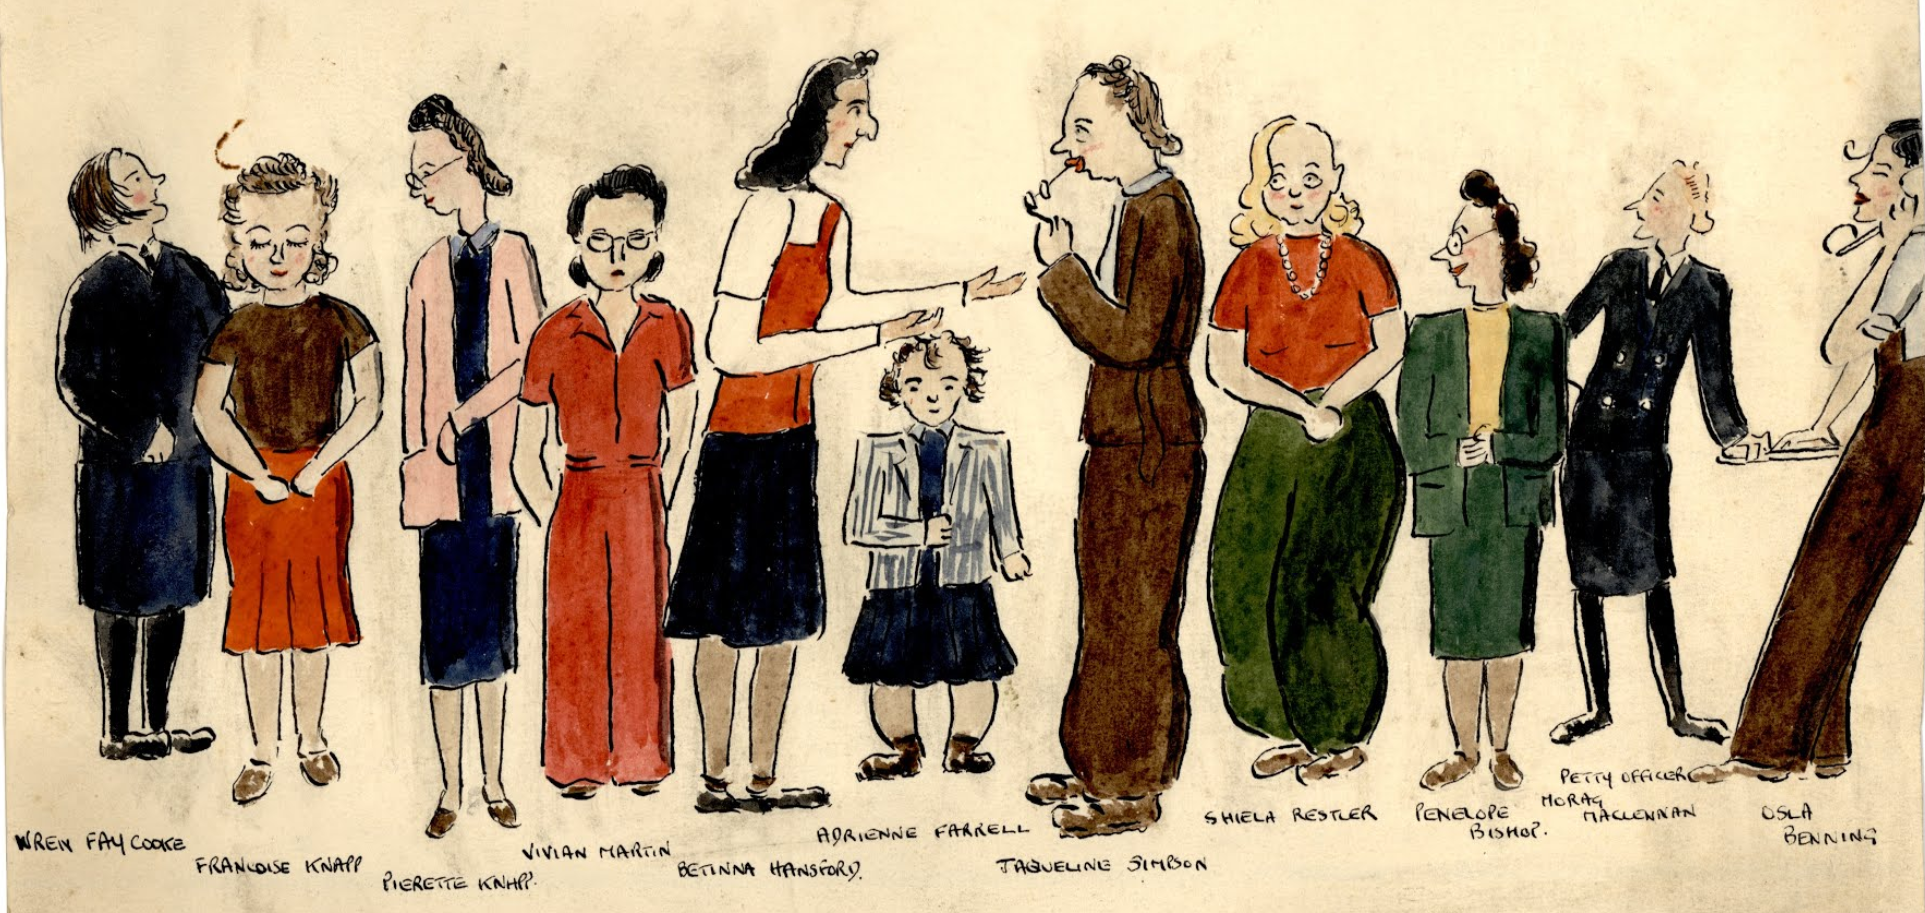 WREN FAY COOKE
FRANCOISE KNAPP
PIERETTE KNAPP.
VIVIAN MARTIN
BETINNA HANSFORD.
ADRIENNE FARRELL
JAQUELINE SIMPSON
SHIELA RESTLER
PENELOPE
BISHOP.
PETTY OFFICER
MORAG
MACLENNAN
OSLA
BENNING